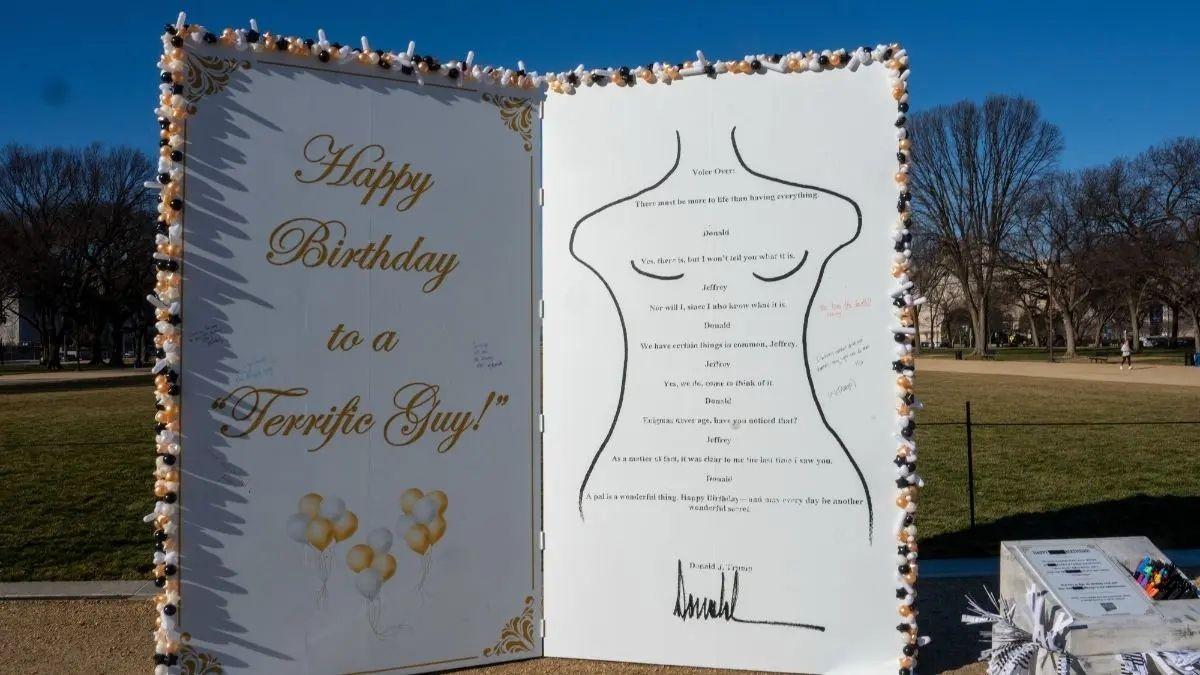 Happy
Birthday
to a
"Terrific Guy!"
Voice Over:
There must be more to life than having everything.
Donald
Yes, there is, but I won't tell you what it is.
Jeffrey
Nor will I, since I also know what it is.
Donald
We have certain things in common, Jeffrey.
Jeffrey
Yes, we do, come to think of it.
Donald
Enigmas never age, have you noticed that?
Jeffrey
As a matter of fact, it was clear to me the last time I saw you.
Donald
A pal is a wonderful thing. Happy Birthday — and may every day be another
wonderful secret.
Donald J. Trump
Donald